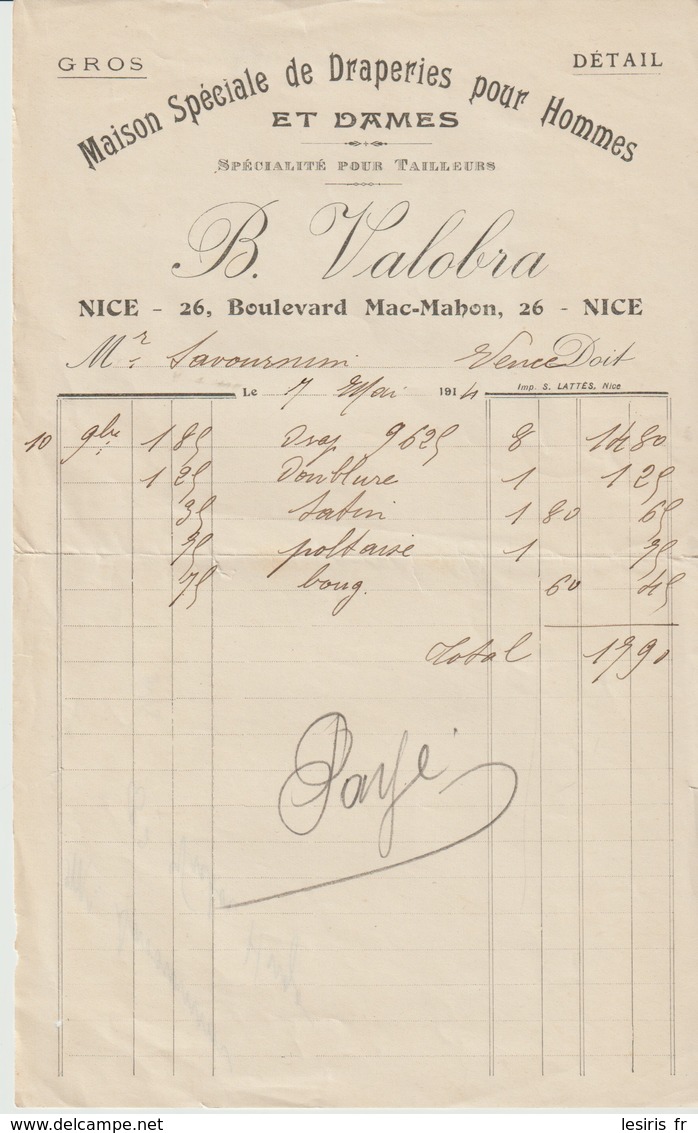 GROS
DÉTAIL
Maison Spéciale de Draperies pour Hommes
ET DAMES
SPÉCIALITÉ POUR TAILLEURS
B. Valobra
NICE - 26, Boulevard Mac-Mahon, 26 - NICE
Mr Savournin Vence Doit
Le 7 Mai 1914 Imp. S. LATTÈS, Nice
10 9bre 1 85 Drap 9625 8 14 80
1 25 Doublure 1 1 25
35 Satin 1 80 65
75 1
75 boug. 60 45
Total 17 90
Payé
lesiris fr